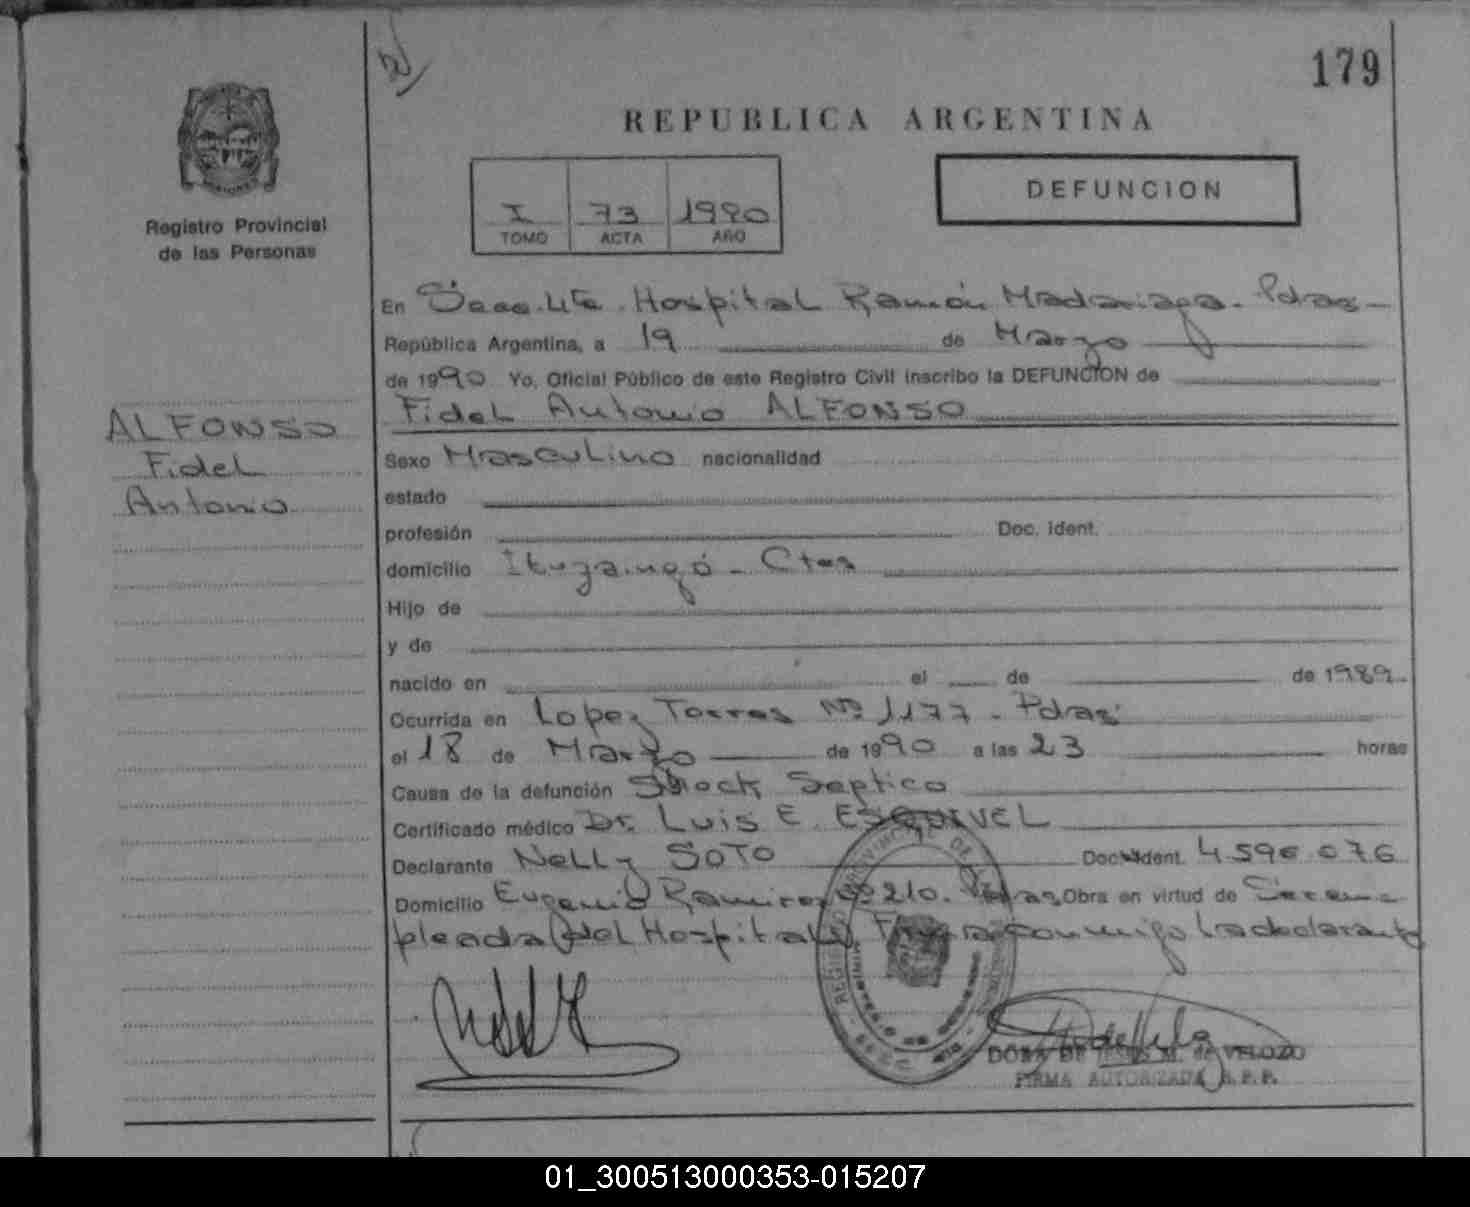 179
REPUBLICA ARGENTINA
Registro Provincial
de las Personas
I 73 1990
TOMO ACTA AÑO
DEFUNCION
En Secc. 4ta. Hospital Ramón Madariaga - Pdas -
República Argentina, a 19 de Marzo
de 1990 Yo, Oficial Público de este Registro Civil inscribo la DEFUNCION de
Fidel Antonio ALFONSO
ALFONSO
Fidel
Antonio
Sexo Masculino nacionalidad
estado
profesión Doc. Ident.
domicilio Ituzaingó - Ctes
Hijo de
y de
nacido en el de de 1989
Ocurrida en Lopez Torres Nº 1177 - Pdas
el 18 de Marzo de 1990 a las 23 horas
Causa de la defunción Shock Septico
Certificado médico Dr. Luis E. ESQUIVEL
Declarante Nelly SOTO Doc. Ident. 4.596.076
Domicilio Eugenio Ramirez Nº 210. Pdas Obra en virtud de Ser em-
pleada del Hospital. Firma conmigo la declarante
DORA DE JESUS M. de VELOZO
FIRMA AUTORIZADA R.P.P.
01_300513000353-015207